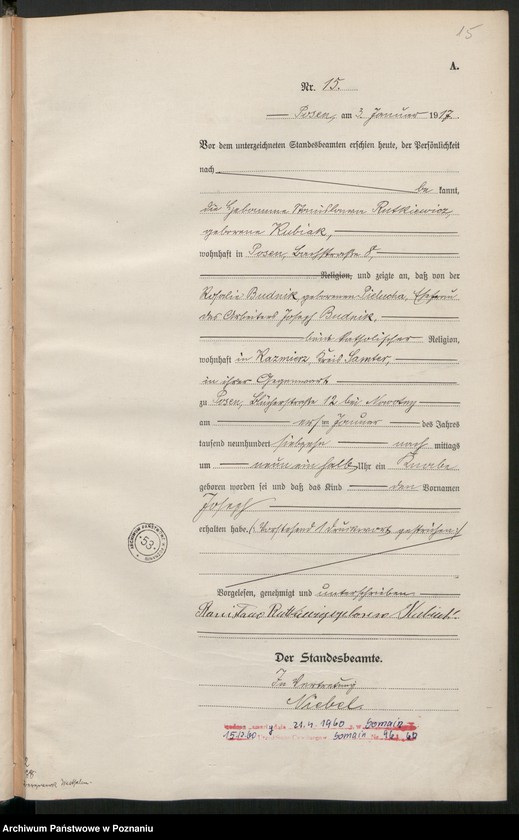 15
A.
Nr. 15.
Posen, am 3. Januar 1917.
Vor dem unterzeichneten Standesbeamten erschien heute, der Persönlichkeit
nach
be kannt,
die Hebamme Stanislawa Rutkiewicz,
geborene Kubiak,
wohnhaft in Posen, Bachstraße 8,
Religion, und zeigte an, daß von der
Rosalie Budnik, geborenen Pielucha, Ehefrau
des Arbeiters Joseph Budnik,
beide katholischer Religion,
wohnhaft in Kazmierz, Kreis Samter,
in ihrer Gegenwart
zu Posen, Blücherstraße 12 bei Nowotny
am ersten Januar des Jahres
tausend neunhundert siebzehn nach mittags
um neun ein halb Uhr ein Knabe
geboren worden sei und daß das Kind den Vornamen
Joseph
erhalten habe. (Vorstehend 1 Druckwort gestrichen.)
Vorgelesen, genehmigt und unterschrieben
Stanislawa Rutkiewicz geborene Kubiak.
Der Standesbeamte.
In Vertretung
Niebel
21.4.1960
15.12.60
Archiwum Państwowe w Poznaniu